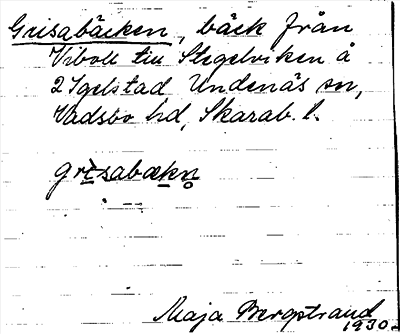 Grisabäcken, bäck från
Viboll till Stegelviken å
2 Igelstad Undenäs sn,
Vadsbo hd, Skarab. l.
grìsabækn̥
Maja Bergstrand
1930.